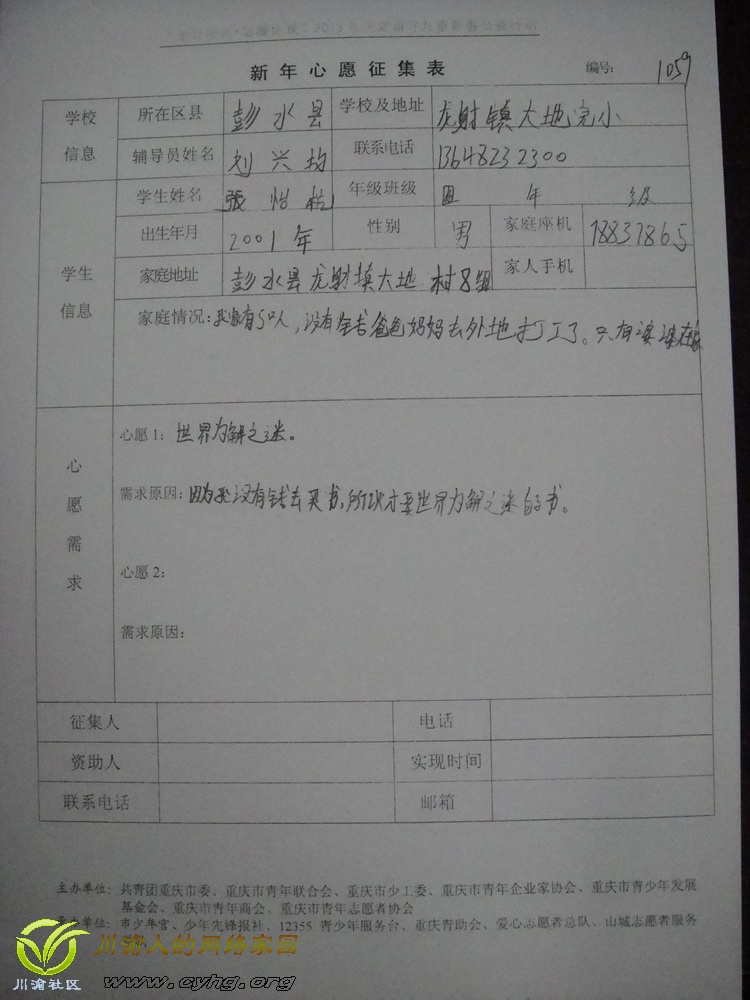 新年心愿征集表 编号: 1059
学校信息 所在区县 彭水县 学校及地址 龙射镇大地完小
辅导员姓名 刘兴均 联系电话 13648232300
学生信息 学生姓名 張怡 年级班级 四年级
出生年月 2001年 性别 男 家庭座机 78837865
家庭地址 彭水县龙射镇大地村8组 家人手机
家庭情况:我家有5口人,没有钱爸爸妈妈去外地打工了。只有婆婆在家
心愿需求
心愿1: 世界为解之迷。
需求原因: 因为我没有钱去买书,所以才要世界为解之迷的书。
心愿2:
需求原因:
征集人 电话
资助人 实现时间
联系电话 邮箱
主办单位: 共青团重庆市委、重庆市青年联合会、重庆市少工委、重庆市青年企业家协会、重庆市青少年发展
基金会、重庆市青年商会、重庆市青年志愿者协会
承办单位: 市少年宫、少年先锋报社、12355 青少年服务台、重庆青助会、爱心志愿者总队、山城志愿者服务
川渝人的网络家园
川渝社区 www.cyhg.org